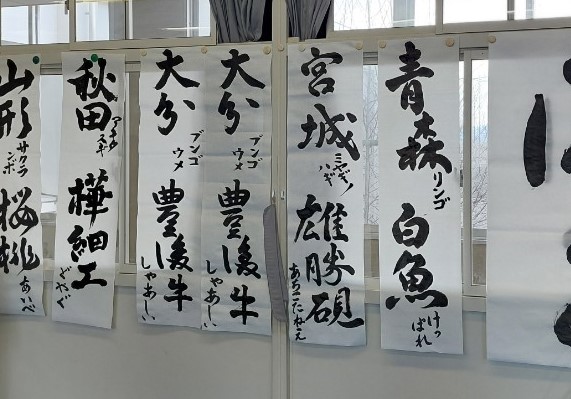 青森
リンゴ
白魚
けっぱれ
宮城
ミヤギノ
ハギ
雄勝硯
あちこたねえ
大分
ブンゴ
ウメ
豊後牛
しゃあしい
大分
ブンゴ
ウメ
豊後牛
しゃあしい
秋田
樺細工
山形
サクラ
ンボ
桜桃
あいべ